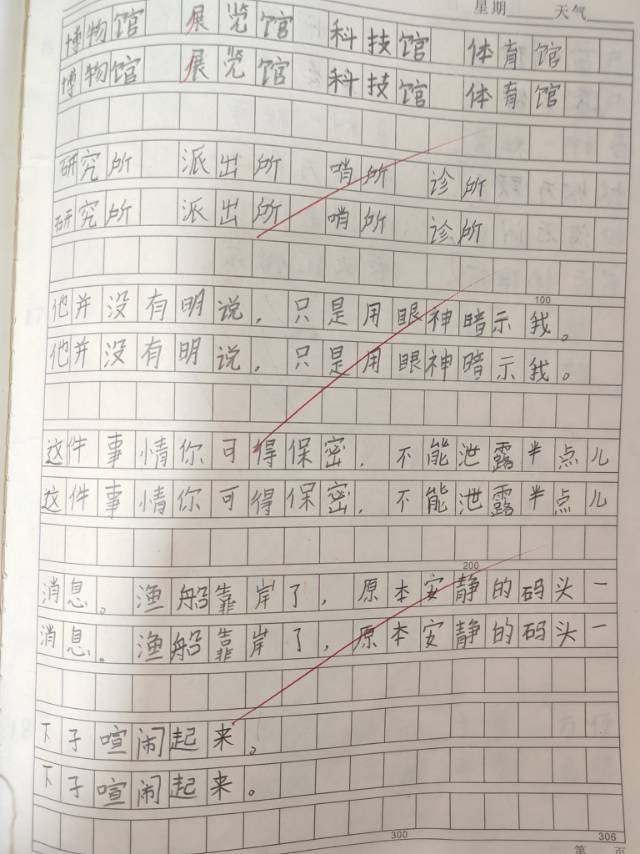 星期 天气
博物馆 展览馆 科技馆 体育馆
博物馆 展览馆 科技馆 体育馆
研究所 派出所 哨所 诊所
研究所 派出所 哨所 诊所
100
他并没有明说,只是用眼神暗示我。
他并没有明说,只是用眼神暗示我。
这件事情你可得保密.不能泄露半点儿
这件事情你可得保密.不能泄露半点儿
200
消息。渔船靠岸了,原本安静的码头一
消息。渔船靠岸了,原本安静的码头一
下子喧闹起来。
下子喧闹起来。
300 306
第 页